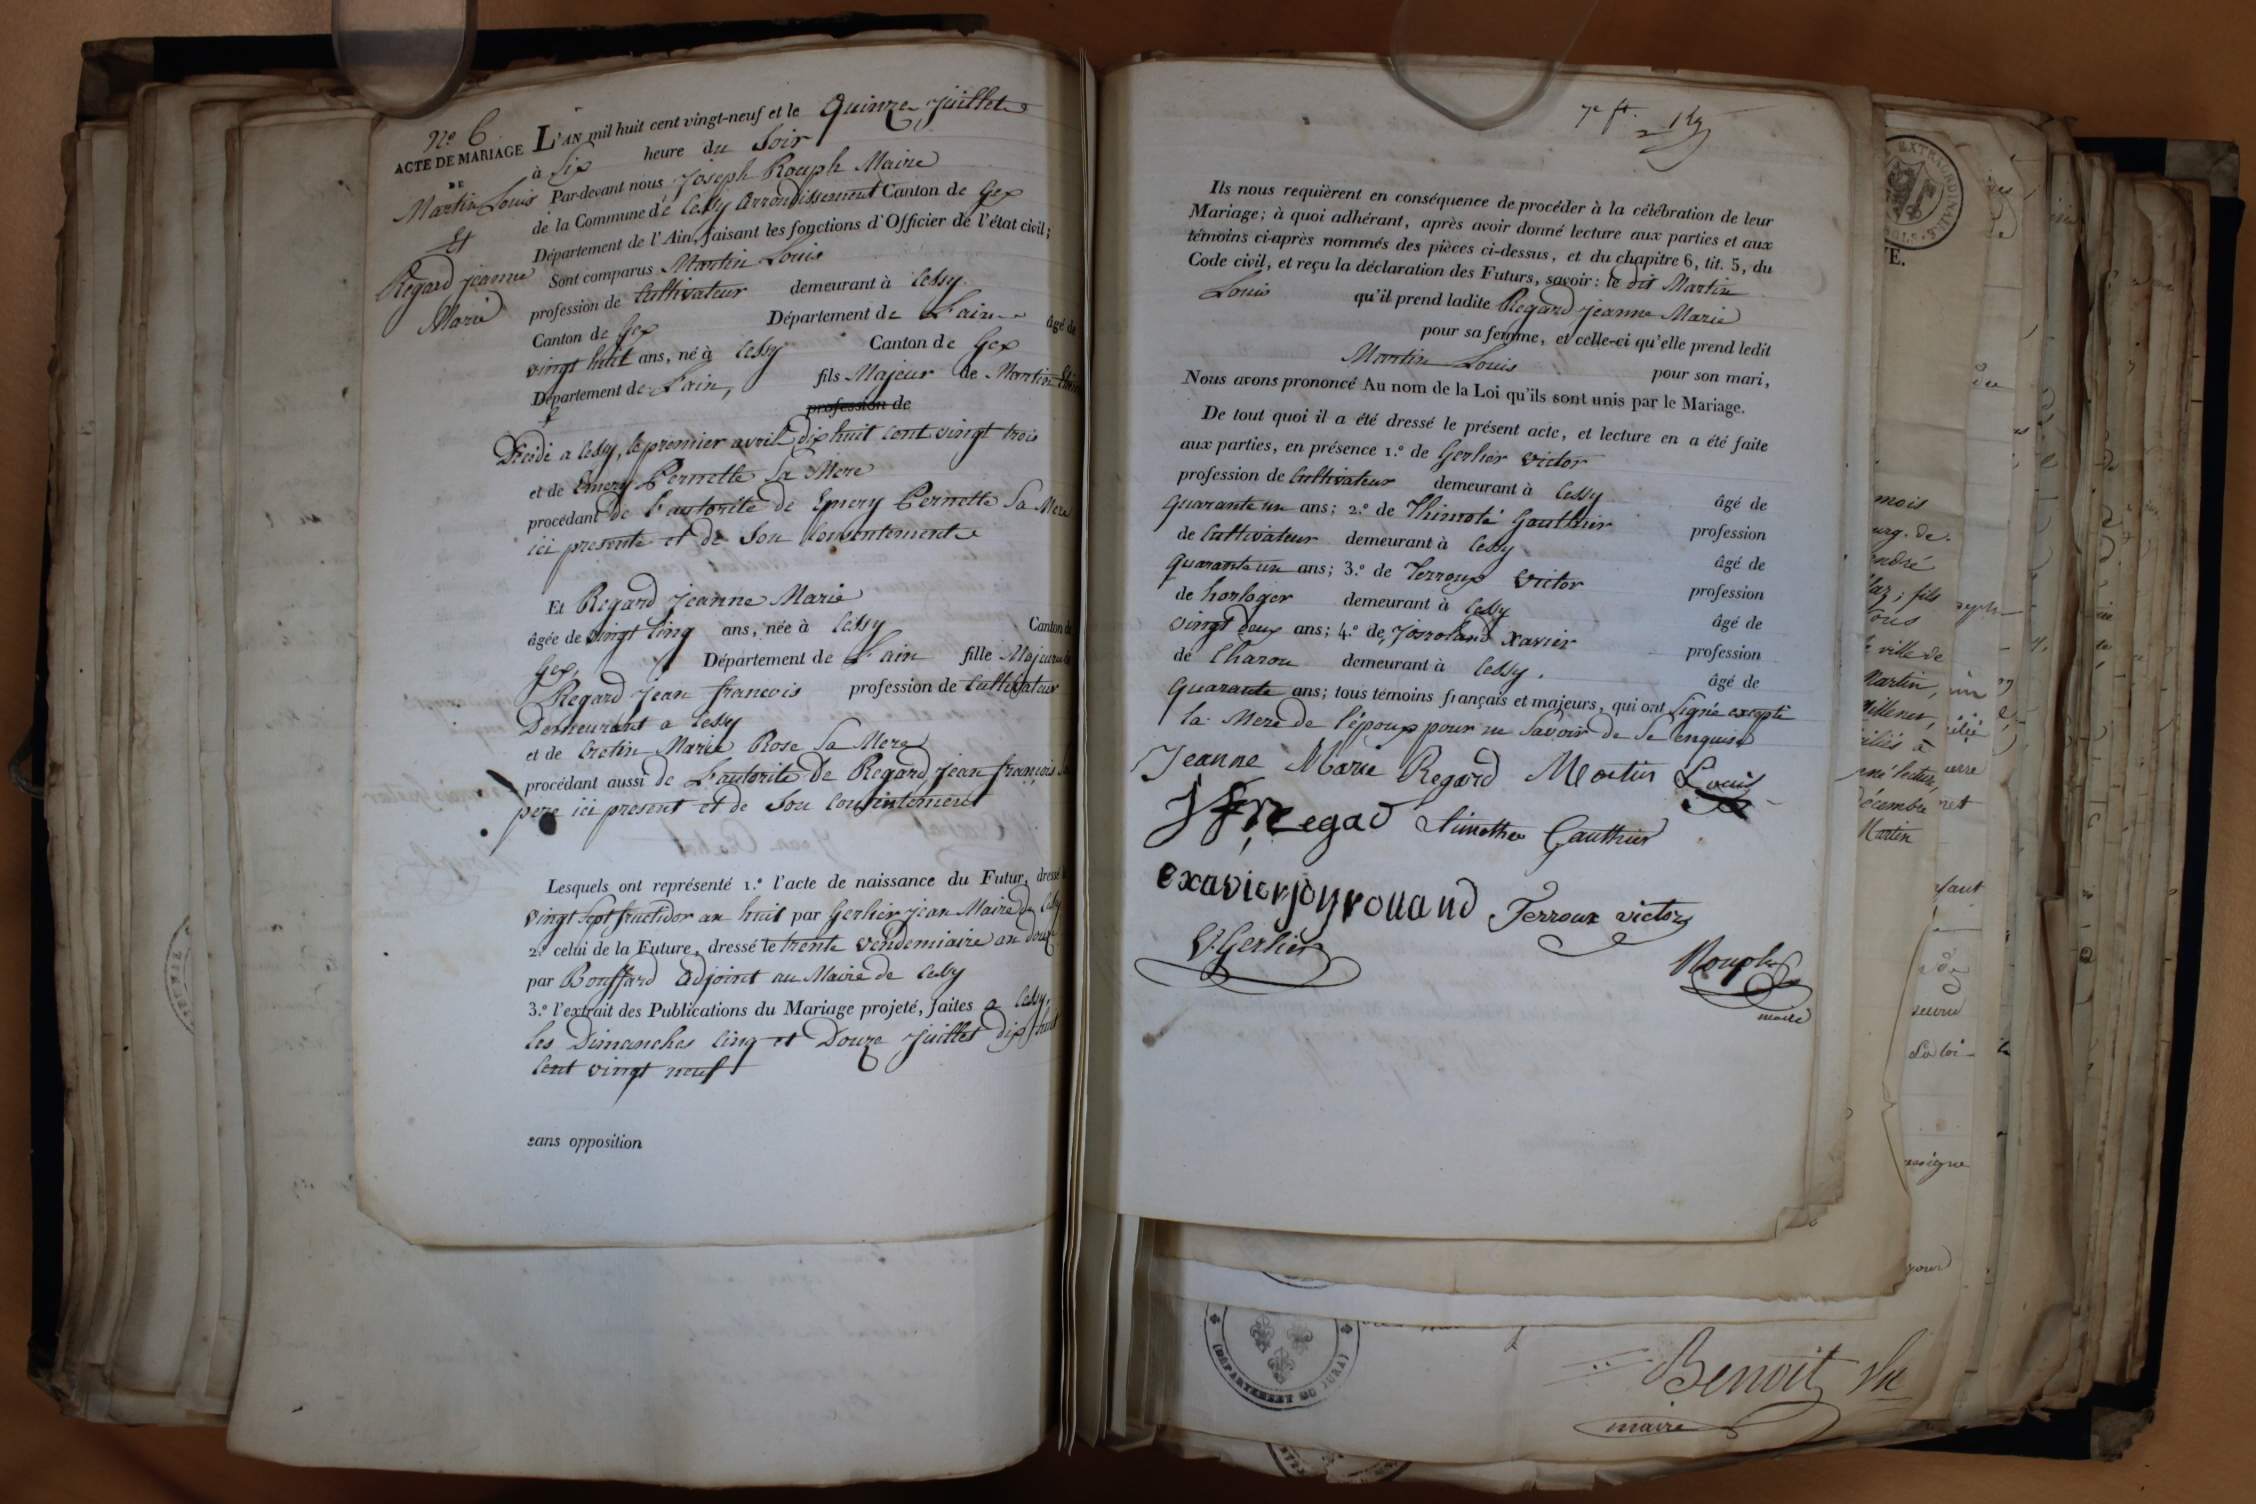 N.º 6
ACTE DE MARIAGE
DE
Martin Louis
Et
Regard jeanne
Marie
L'AN mil huit cent vingt-neuf et le Quinze juillet
à Six heure du Soir
Par-devant nous joseph Rouph Maire
de la Commune de Cessy arrondissement Canton de Gex
Département de l'Ain, faisant les fonctions d'Officier de l'état civil;
Sont comparus Martin Louis
profession de Cultivateur demeurant à Cessy
Canton de Gex Département de L'ain âgé de
vingt huit ans, né à Cessy Canton de Gex
Département de L'ain, fils Majeur de Martin
profession de
Décédé a Cessy, le premier avril dix huit cent vingt trois
et de Emery Pernette Sa Mere
procédant de L'autorité de Emery Pernette Sa Mere
ici presente et de Son Consentement
Et Regard jeanne Marie
âgée de vingt Cinq ans, née à Cessy Canton de
Gex, Département de L'ain fille Majeure
Regard jean francois profession de Cultivateur
Demeurant a Cessy
et de Cretin Marie Rose Sa Mere
procédant aussi de L'autorité de Regard jean françois
pere ici present et de Son Consintement
Lesquels ont représenté 1.º l'acte de naissance du Futur, dressé
vingt Sept fructidor an huit par Gerlier jean Maire de
2.º celui de la Future, dressé le trente vendemiaire an douze
par Bouffard adjoint au Maire de Cessy
3.º l'extrait des Publications du Mariage projeté, faites a Cessy,
les Dimanches Cinq et Douze juillet dix huit
Cent vingt neuf
sans opposition
7e ft.
Ils nous requièrent en conséquence de procéder à la célébration de leur
Mariage; à quoi adhérant, après avoir donné lecture aux parties et aux
témoins ci-après nommés des pièces ci-dessus, et du chapitre 6, tit. 5, du
Code civil, et reçu la déclaration des Futurs, savoir: le dit Martin
Louis qu'il prend ladite Regard jeanne Marie
pour sa femme, et celle-ci qu'elle prend ledit
Martin Louis pour son mari,
Nous avons prononcé Au nom de la Loi qu'ils sont unis par le Mariage.
De tout quoi il a été dressé le présent acte, et lecture en a été faite
aux parties, en présence 1.º de Gerlier victor
profession de Cultivateur demeurant à Cessy âgé de
Quarante un ans; 2.º de Thimoté Gauthier profession
de Cultivateur demeurant à Cessy âgé de
Quarante un ans; 3.º de Terroux victor profession
de horloger demeurant à Cessy âgé de
vingt deux ans; 4.º de Joiroland Xavier profession
de Charon demeurant à Cessy. âgé de
Quarante ans; tous témoins français et majeurs, qui ont Signé excepté
la Mere de l'époux pour ne Savoir de Ce enquise
Jeanne Marie Regard Martin Louis
J f Regad timothee Gauthier
exavier joyrouand Terroux victor
V. Gerlier
Rouph
maire
EXTRAORDINAIRE
E.
mois
fils
ville de
Martin,
décembre
Martin
La loi
DÉPARTEMENT DU JURA
Benoit
maire